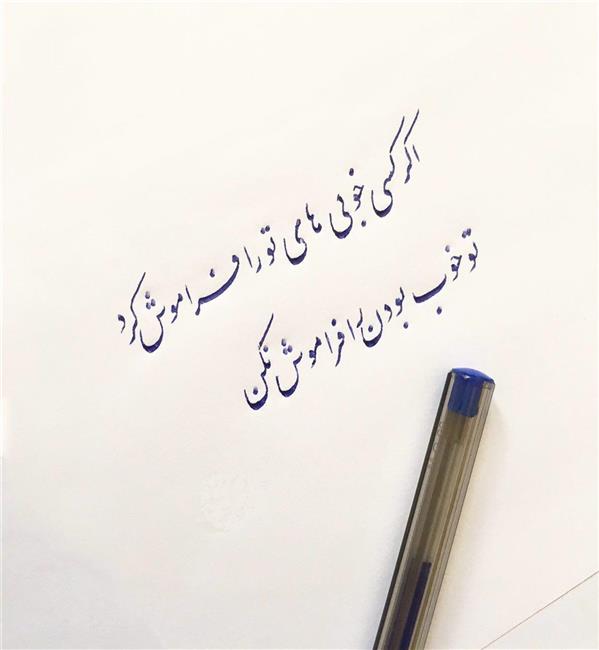 اگر کسی خوبی های تو را فراموش کرد
تو خوب بودن را فراموش نکن